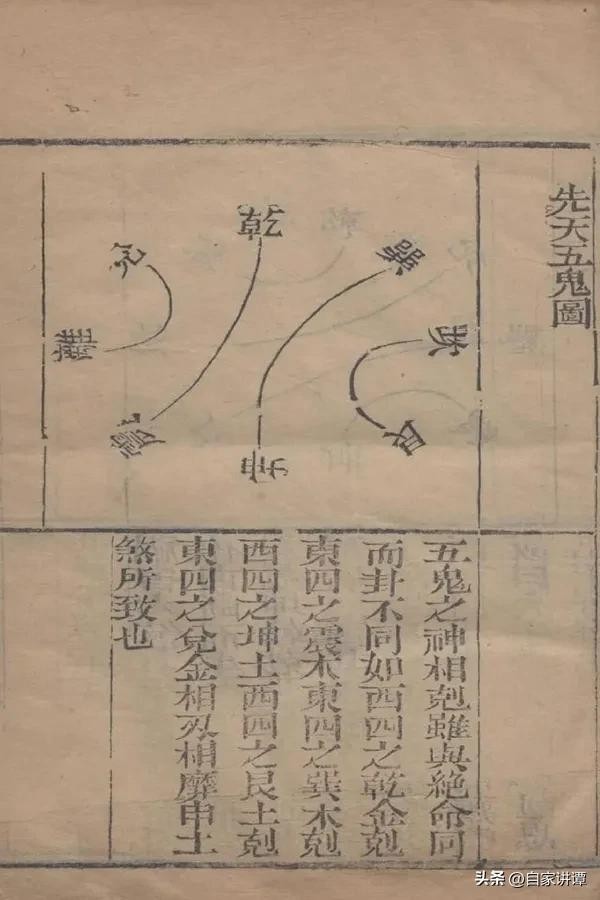 先天五鬼圖
乾
巽
坎
艮
坤
震
離
兌
五鬼之神相剋雖與絶命同
而封不同如西四之乾金剋
東四之震木東四之巽木剋
西四之坤土西四之艮土剋
東四之兌金相刄相靡申土
煞所致也
头条 @自家讲谭